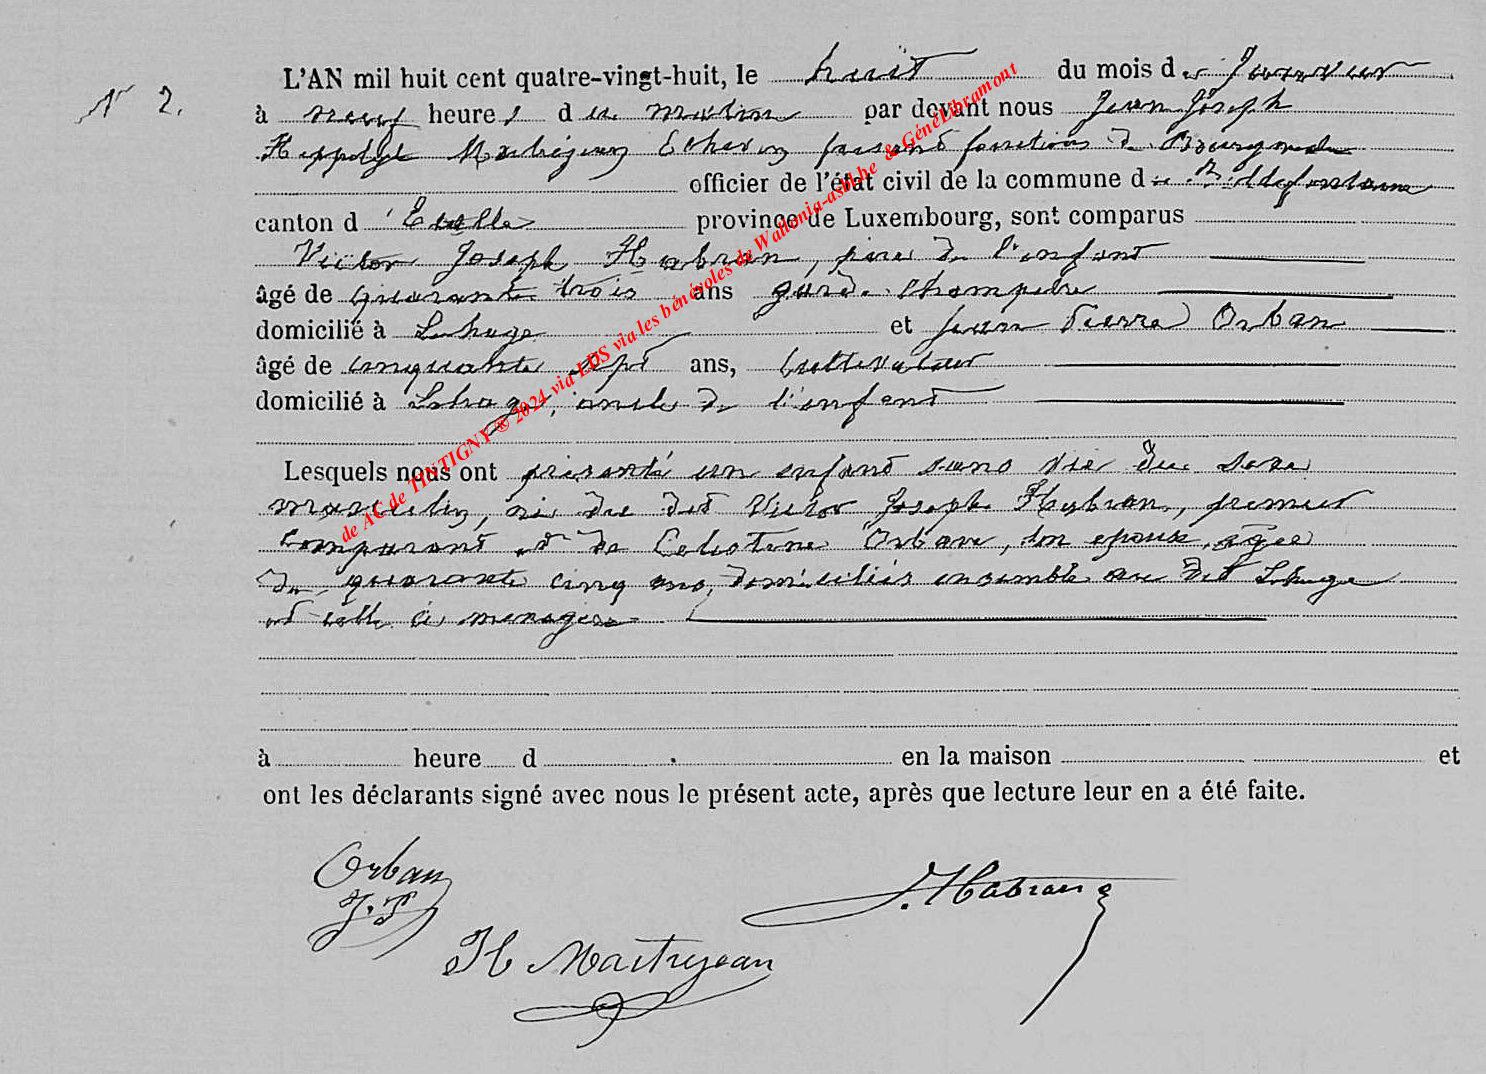 N° 2.
L'AN mil huit cent quatre-vingt-huit, le huit du mois de Janvier
à neuf heures du matin par devant nous Jean Joseph
Hippolyte Maitrejean Echevin faisant fonctions de Bourgmestre
officier de l'état civil de la commune de Bellefontaine
canton d'Etalle province de Luxembourg, sont comparus
Victor Joseph Habran, père de l'enfant
âgé de quarante trois ans garde champêtre
domicilié à Lahage et Jean Pierre Orban
âgé de cinquante sept ans, cultivateur
domicilié à Lahage, oncle de l'enfant
Lesquels nous ont présenté un enfant sans vie du sexe
masculin, né du dit Victor Joseph Habran, premier
comparant et de Celestine Orban, son epouse, agée
de quarante cinq ans, domiciliés ensemble au dit Lahage
et celle ci menagère
à heure d en la maison et
ont les déclarants signé avec nous le présent acte, après que lecture leur en a été faite.
Orban
J. P
J. Habran
H Maitrejean
de AC de TINTIGNY © 2024 via LDS via les bénévoles de Wallonia-asbbhe & GénéLibramont